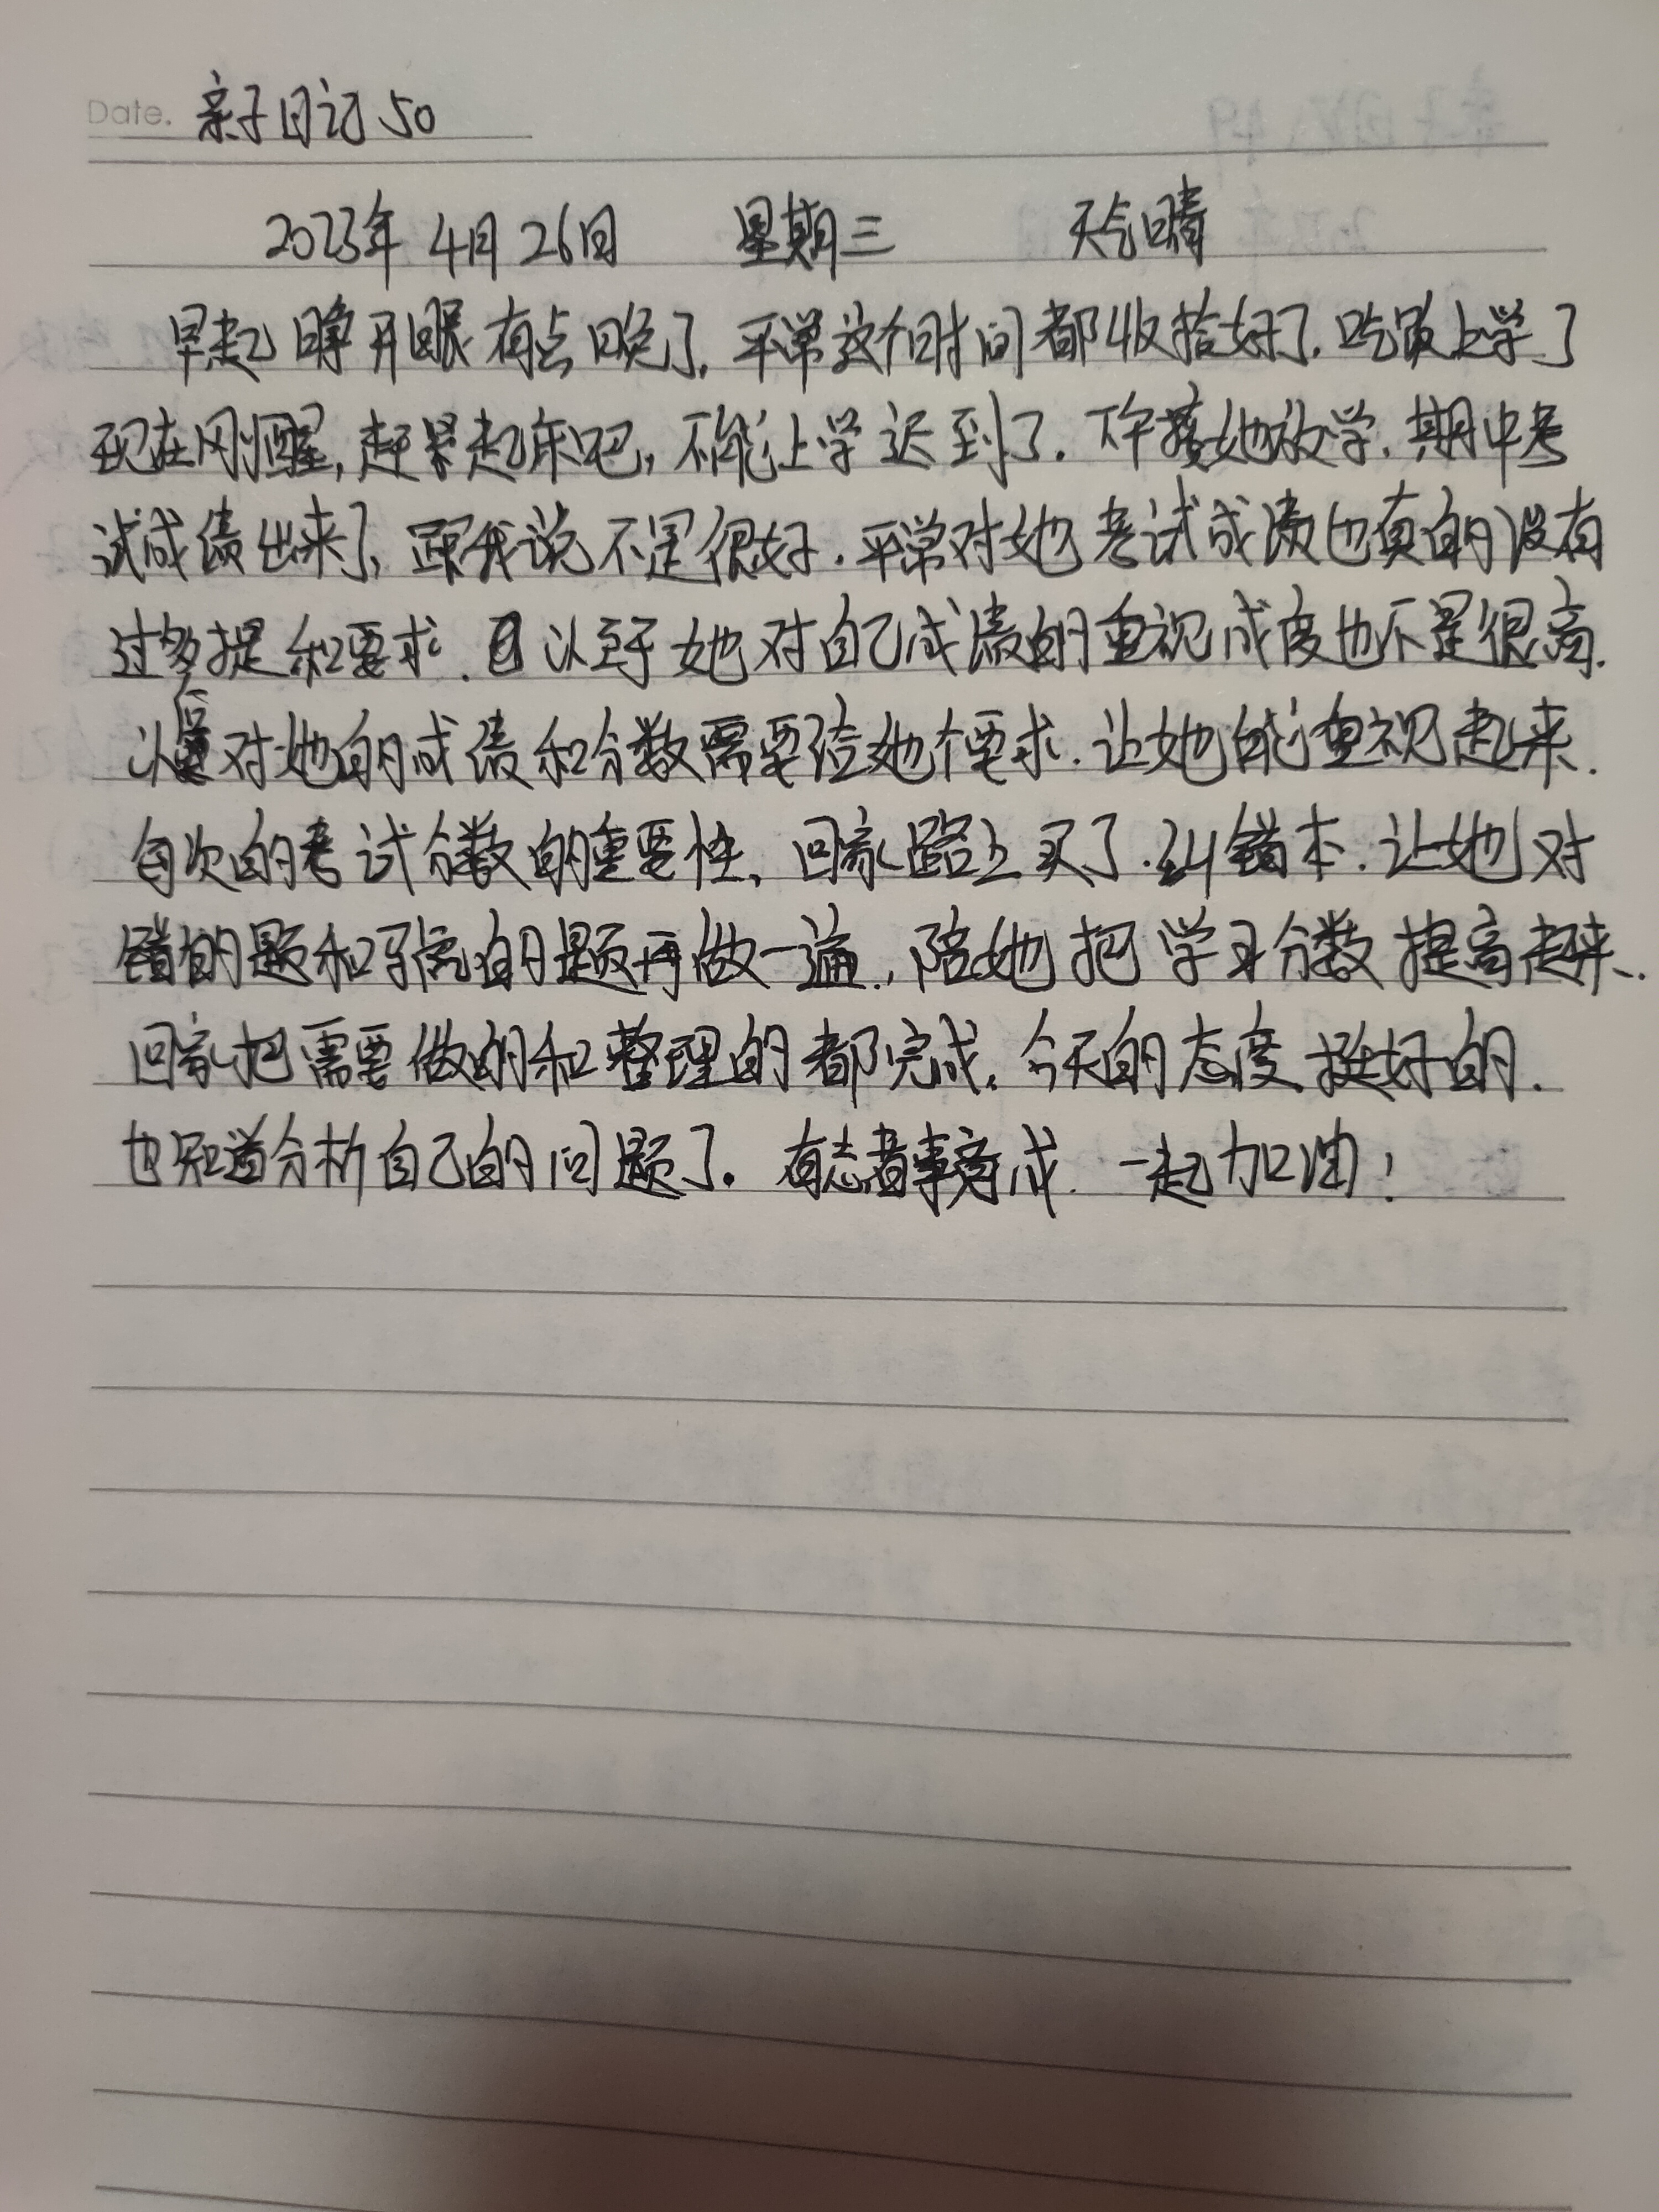 Date. 亲子日记50
2023年4月26日 星期三 天气晴
早起睁开眼有点晚了,平常这个时间都收拾好了.吃饭上学了
现在刚醒,赶紧起床吧,不能上学迟到了.下午接她放学.期中考
试成绩出来了,跟我说不是很好.平常对她考试成绩也真的没有
过多提和要求.以至于她对自己成绩的重视成度也不是很高.
以后对她的成绩和分数需要给她个要求.让她能重视起来.
每次的考试分数的重要性,回家路上买了.纠错本.让她对
错的题和马虎的题再做一遍.,陪她把学习分数提高起来.
回家把需要做的和整理的都完成.今天的态度挺好的.
也知道分析自己的问题了.有志者事竟成.一起加油!